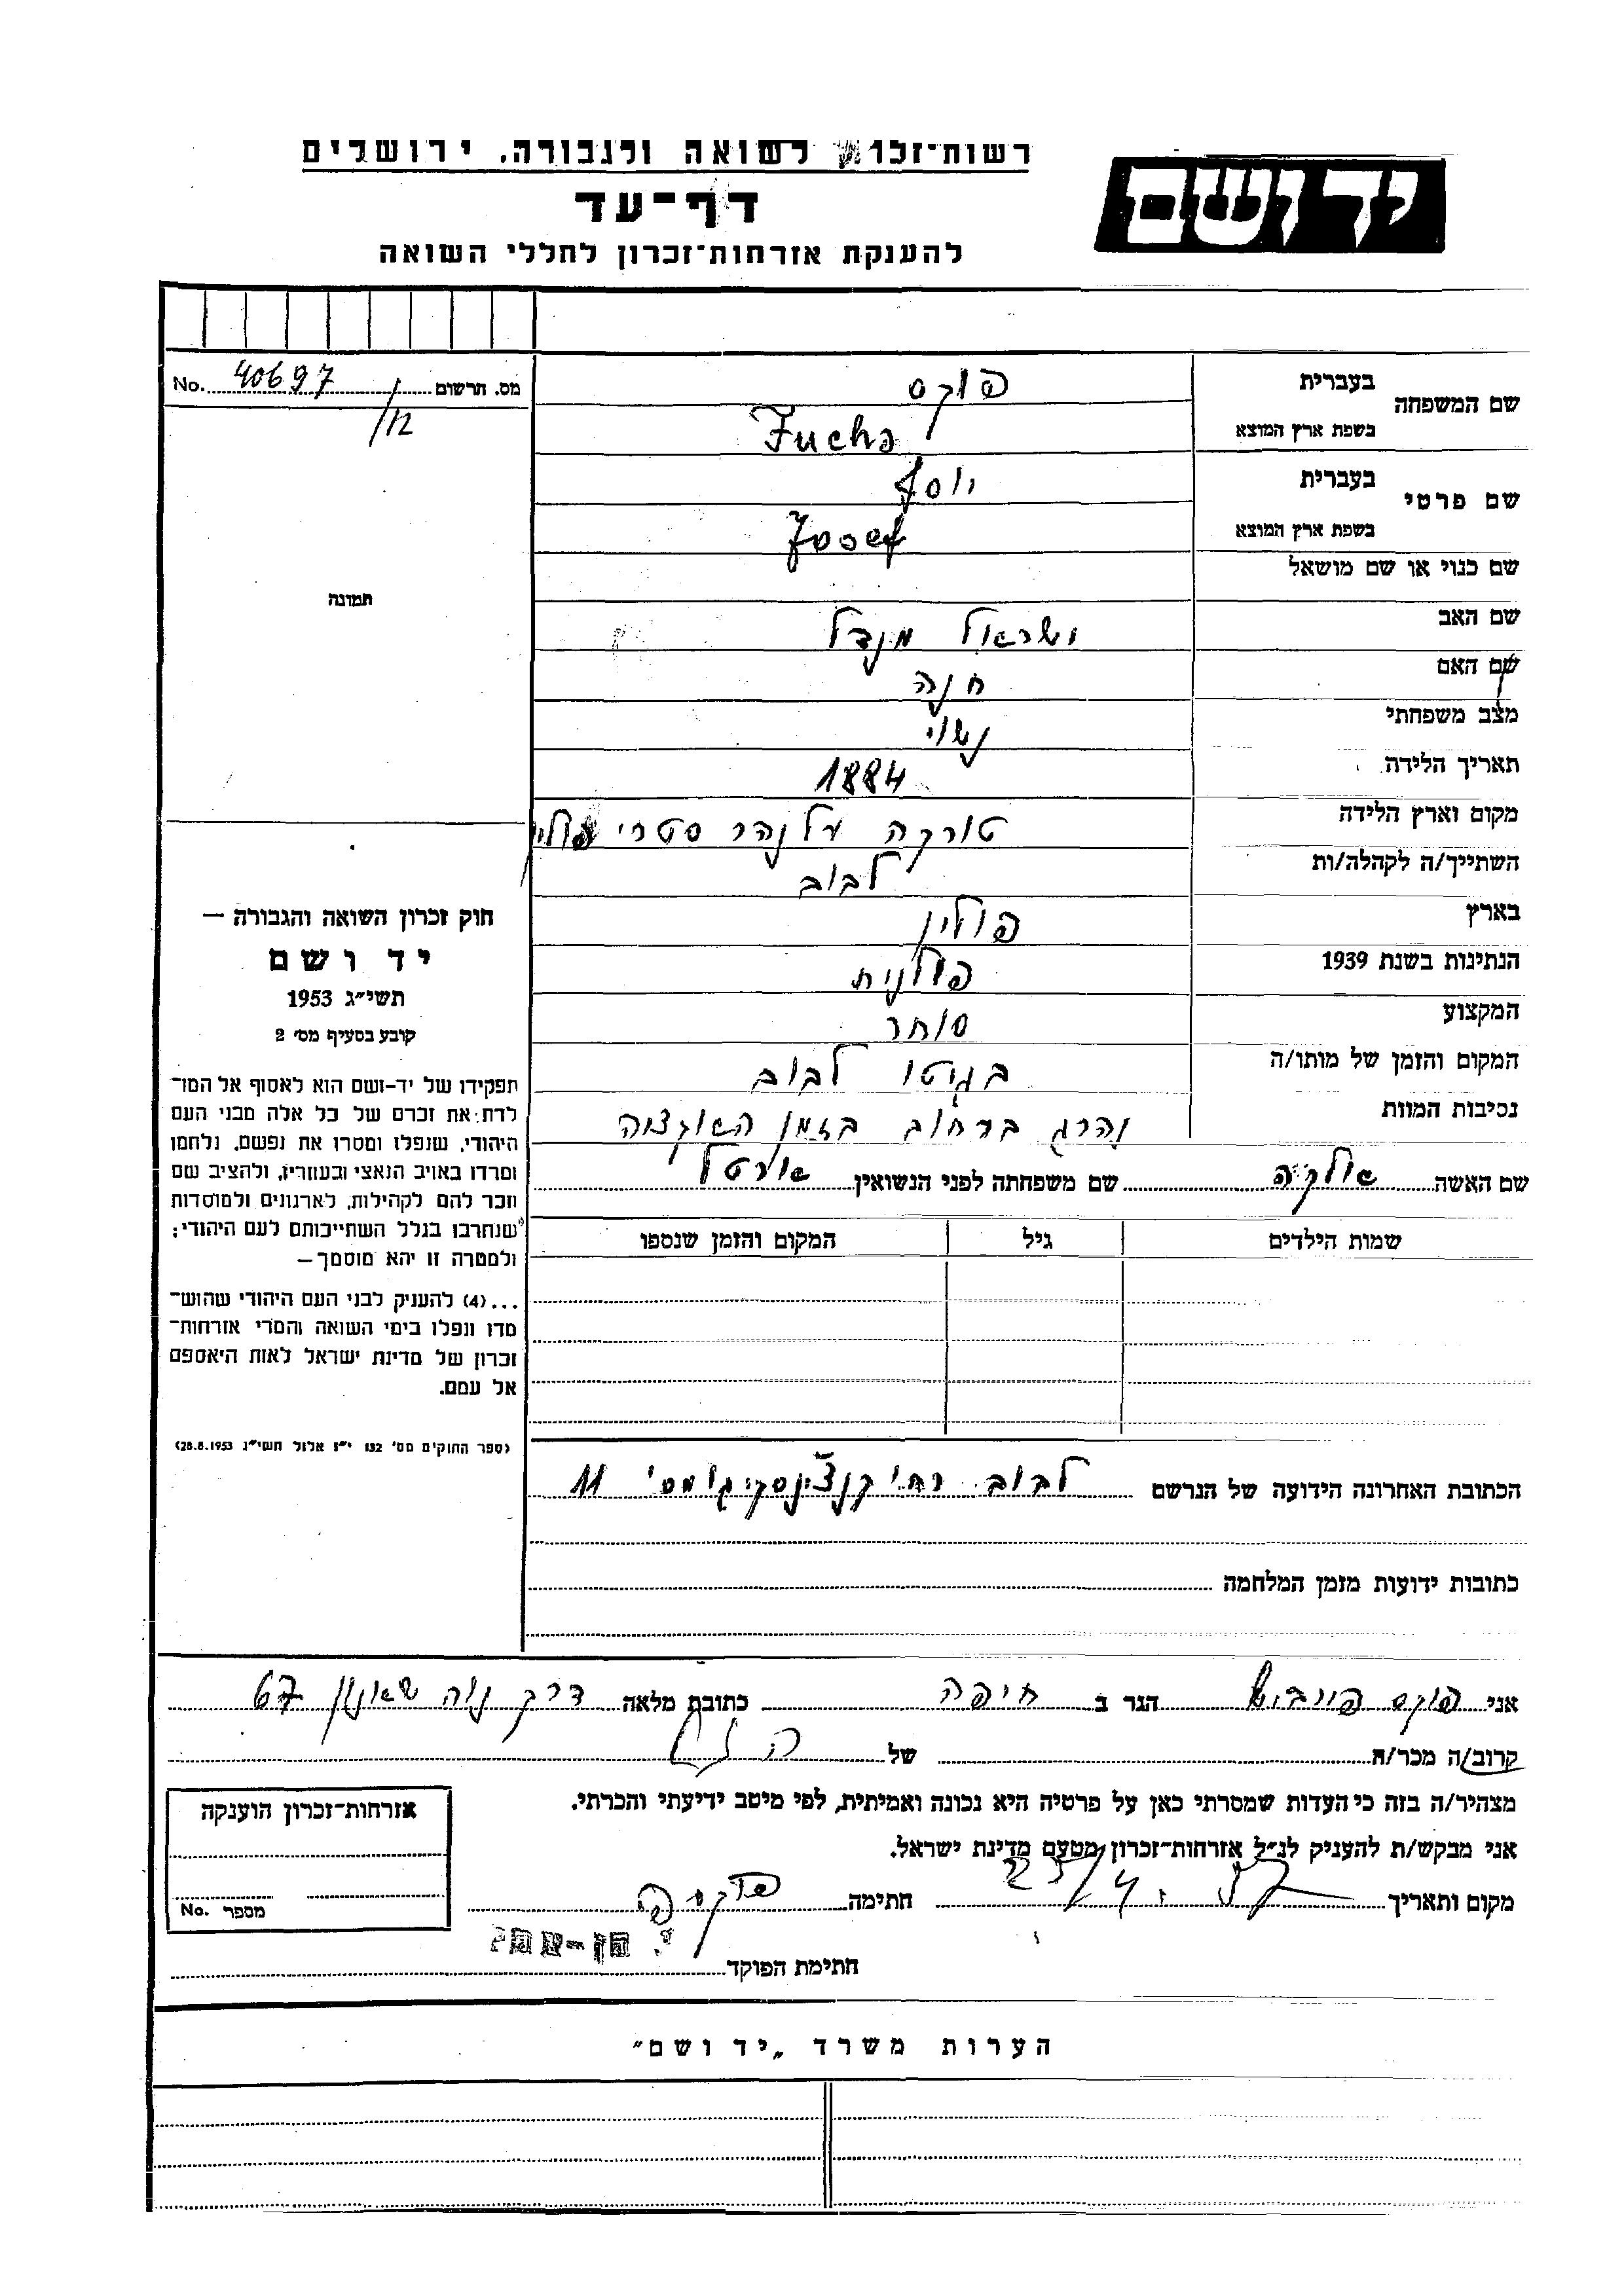 רשות־זכרון לשואה ולגבורה, ירושלים
ידושם
דף־עד
להענקת אזרחות־זכרון לחללי השואה
מס. תרשום No. 40697
/12
שם המשפחה בעברית פוקס
בשפת ארץ המוצא Fuchs
שם פרטי בעברית יוסף
בשפת ארץ המוצא Josef
שם כנוי או שם מושאל
שם האב ישראל מנדל
שם האם חנה
מצב משפחתי נשוי
תאריך הלידה 1884
מקום וארץ הלידה טורקה על נהר סטרי פולין
השתייך/ה לקהלה/ות לבוב
בארץ פולין
הנתינות בשנת 1939 פולנית
המקצוע סוחר
המקום והזמן של מותו/ה בגיטו לבוב
נסיבות המוות נהרג ברחוב בזמן האוקציה
שם האשה שם משפחתה לפני הנשואין אורטל
שמות הילדים גיל המקום והזמן שנספו
הכתובת האחרונה הידועה של הנרשם לבוב רח' מס' 11
כתובות ידועות מזמן המלחמה
תמונה
חוק זכרון השואה והגבורה —
יד ושם
תשי״ג 1953
קובע בסעיף מס׳ 2
תפקידו של יד-ושם הוא לאסוף אל המו־
לדת את זכרם של כל אלה מבני העם
היהודי, שנפלו ומסרו את נפשם, נלחמו
ומרדו באויב הנאצי ובעוזריו, ולהציב שם
וזכר להם לקהילות, לארגונים ולמוסדות
שנחרבו בגלל השתייכותם לעם היהודי;
ולמטרה זו יהא מוסמך—
...(4) להעניק לבני העם היהודי שהוש־
מדו ונפלו בימי השואה והמרי אזרחות־
זכרון של מדינת ישראל לאות היאספם
אל עמם.
(ספר החוקים מס׳ 132 י״ז אלול תשי״ג 28.8.1953)
אני פוקס הגר ב חיפה כתובת מלאה דרך נוה שאנן 67
קרוב/ה מכר/ה של
מצהיר/ה בזה כי העדות שמסרתי כאן על פרטיה היא נכונה ואמיתית, לפי מיטב ידיעתי והכרתי.
אני מבקש/ת להעניק לנ״ל אזרחות־זכרון מטעם מדינת ישראל.
מקום ותאריך חתימה
חתימת הפוקד
אזרחות־זכרון הוענקה
מספר No.
הערות משרד „יד ושם״